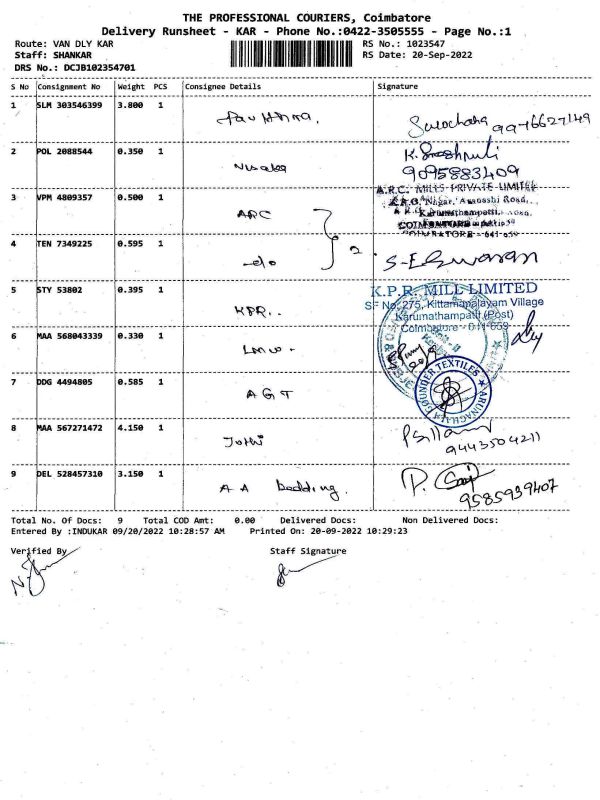 THE PROFESSIONAL COURIERS, Coimbatore
Delivery Runsheet - KAR - Phone No.:0422-3505555 - Page No.:1
Route: VAN DLY KAR RS No.: 1023547
Staff: SHANKAR RS Date: 20-Sep-2022
DRS No.: DCJB102354701
S No Consignment No Weight PCS Consignee Details Signature
1 SLM 303546399 3.800 1
2 POL 2088544 0.350 1
9095883409
3 VPM 4809357 0.500 1 ARC
A.R.C. MILLS PRIVATE LIMITED
4 TEN 7349225 0.595 1 -do 2
5 STY 53802 0.395 1 KPR..
K.P.R. MILL LIMITED
SF No: 275, Kittampalayam Village
Karumathampatti (Post)
Coimbatore - 641 659
6 MAA 568043339 0.330 1
7 DDG 4494805 0.585 1 AGT
GOUNDER TEXTILES ★ ARUNACHALA
8 MAA 567271472 4.150 1 Jothi
9443504211
9 DEL 528457310 3.150 1 AA bedding.
9585939407
Total No. Of Docs: 9 Total COD Amt: 0.00 Delivered Docs: Non Delivered Docs:
Entered By :INDUKAR 09/20/2022 10:28:57 AM Printed On: 20-09-2022 10:29:23
Verified By Staff Signature